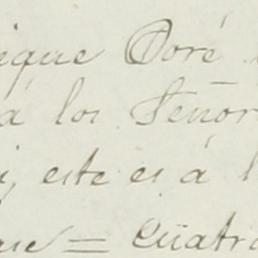 ique Doré
á los Señor
este es á l
= Cuatro